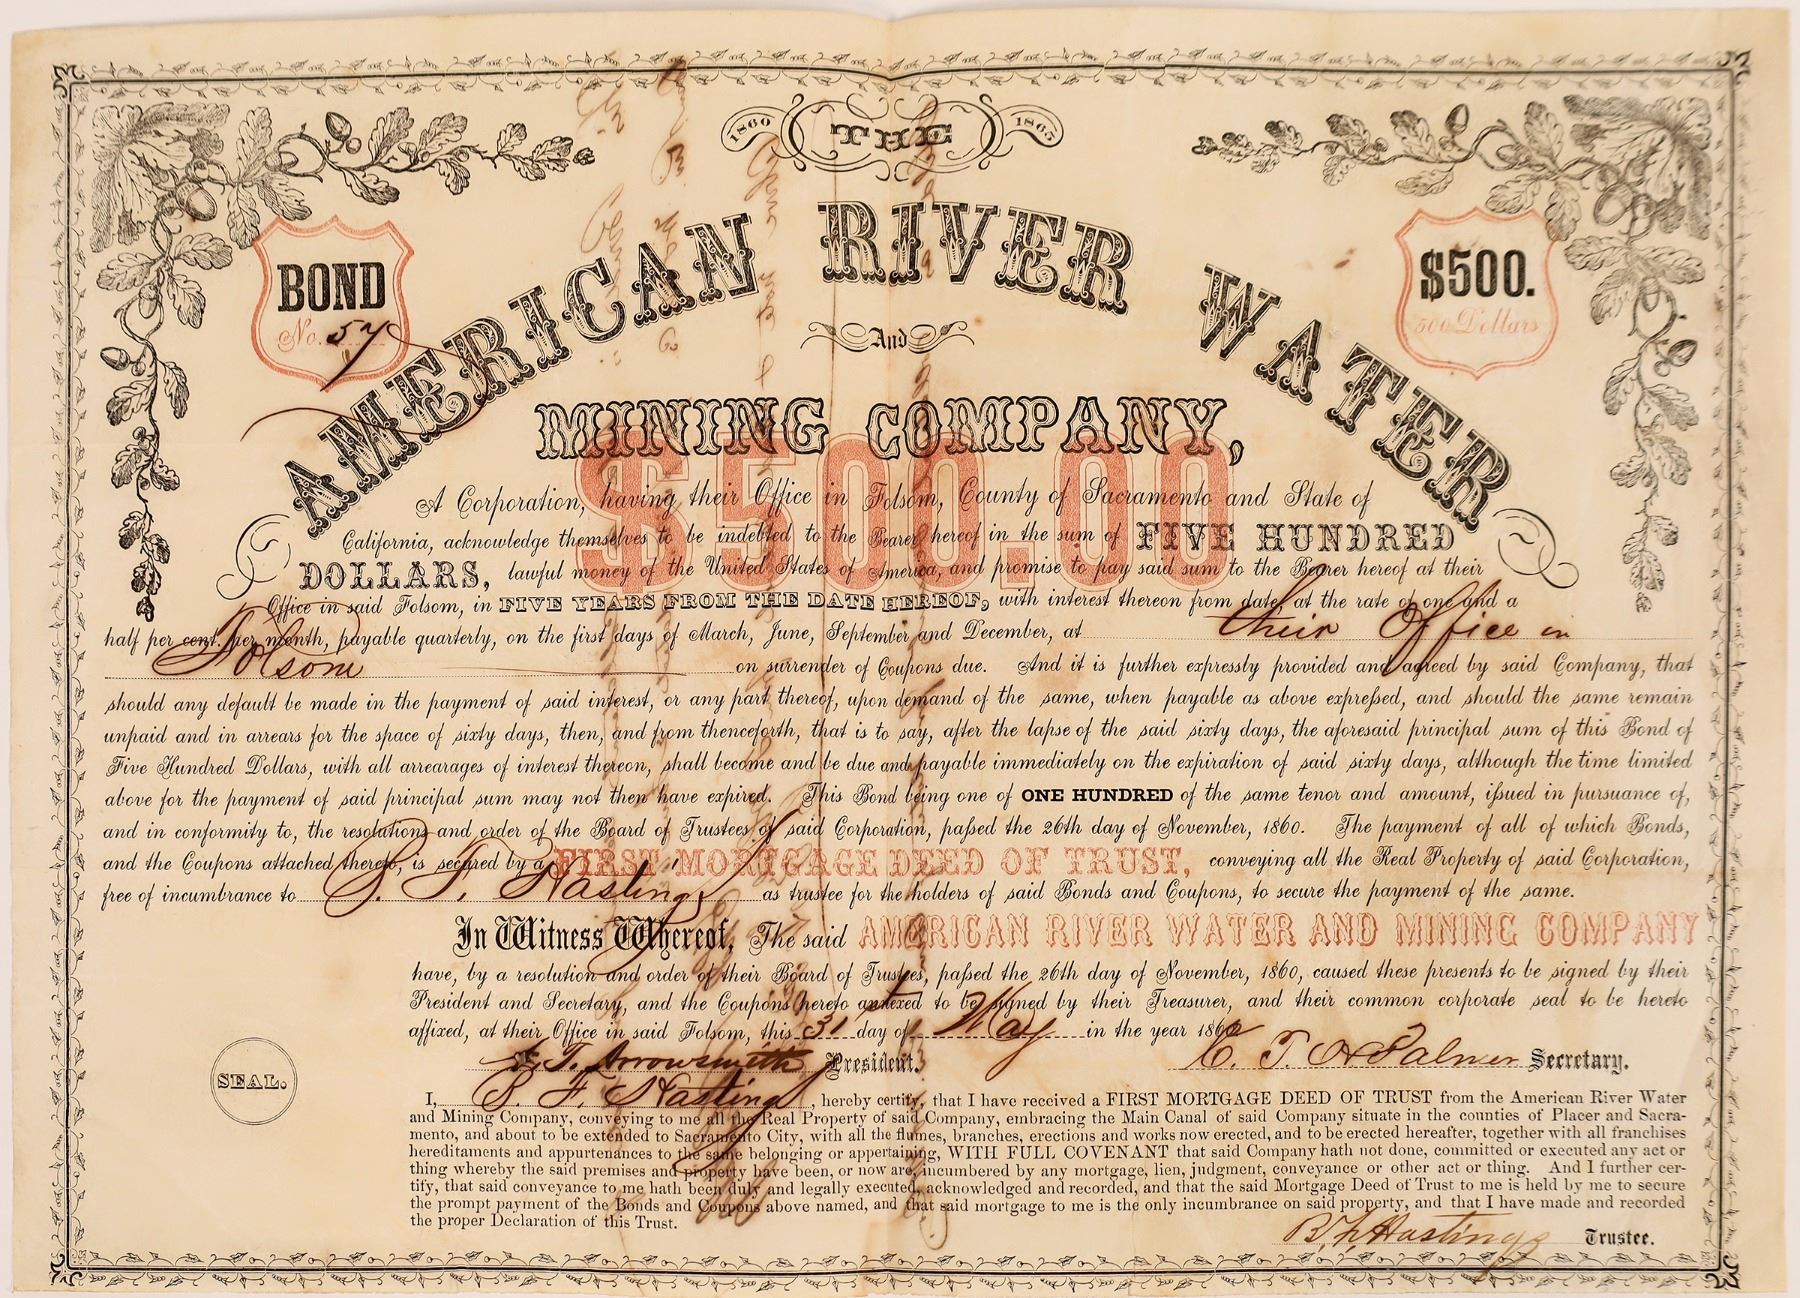 1860 THE 1865
BOND
No. 57
$500.
500 Dollars
AMERICAN RIVER WATER
And
MINING COMPANY,
$500.00
A Corporation, having their Office in Folsom, County of Sacramento and State of
California, acknowledge themselves to be indebted to the Bearer hereof in the sum of FIVE HUNDRED
DOLLARS, lawful money of the United States of America, and promise to pay said sum to the Bearer hereof at their
Office in said Folsom, in FIVE YEARS FROM THE DATE HEREOF, with interest thereon from date, at the rate of one and a
half per cent. per month, payable quarterly, on the first days of March, June, September and December, at their Office in
Folsom on surrender of Coupons due. And it is further expressly provided and agreed by said Company, that
should any default be made in the payment of said interest, or any part thereof, upon demand of the same, when payable as above expressed, and should the same remain
unpaid and in arrears for the space of sixty days, then, and from thenceforth, that is to say, after the lapse of the said sixty days, the aforesaid principal sum of this Bond of
Five Hundred Dollars, with all arrearages of interest thereon, shall become and be due and payable immediately on the expiration of said sixty days, although the time limited
above for the payment of said principal sum may not then have expired. This Bond being one of ONE HUNDRED of the same tenor and amount, issued in pursuance of,
and in conformity to, the resolutions and order of the Board of Trustees of said Corporation, passed the 26th day of November, 1860. The payment of all of which Bonds,
and the Coupons attached thereto, is secured by a FIRST MORTGAGE DEED OF TRUST, conveying all the Real Property of said Corporation,
free of incumbrance to B. F. Hastings as trustee for the holders of said Bonds and Coupons, to secure the payment of the same.
In Witness Whereof, The said AMERICAN RIVER WATER AND MINING COMPANY
have, by a resolution and order of their Board of Trustees, passed the 26th day of November, 1860, caused these presents to be signed by their
President and Secretary, and the Coupons hereto annexed to be signed by their Treasurer, and their common corporate seal to be hereto
affixed, at their Office in said Folsom, this 31 day of May in the year 186
T. Arrowsmith President. C. T. H. Palmer Secretary.
SEAL.
I, B. F. Hastings, hereby certify, that I have received a FIRST MORTGAGE DEED OF TRUST from the American River Water
and Mining Company, conveying to me all the Real Property of said Company, embracing the Main Canal of said Company situate in the counties of Placer and Sacra-
mento, and about to be extended to Sacramento City, with all the flumes, branches, erections and works now erected, and to be erected hereafter, together with all franchises
hereditaments and appurtenances to the same belonging or appertaining, WITH FULL COVENANT that said Company hath not done, committed or executed any act or
thing whereby the said premises and property have been, or now are, incumbered by any mortgage, lien, judgment, conveyance or other act or thing. And I further cer-
tify, that said conveyance to me hath been duly and legally executed, acknowledged and recorded, and that the said Mortgage Deed of Trust to me is held by me to secure
the prompt payment of the Bonds and Coupons above named, and that said mortgage to me is the only incumbrance on said property, and that I have made and recorded
the proper Declaration of this Trust.
B. F. Hastings Trustee.